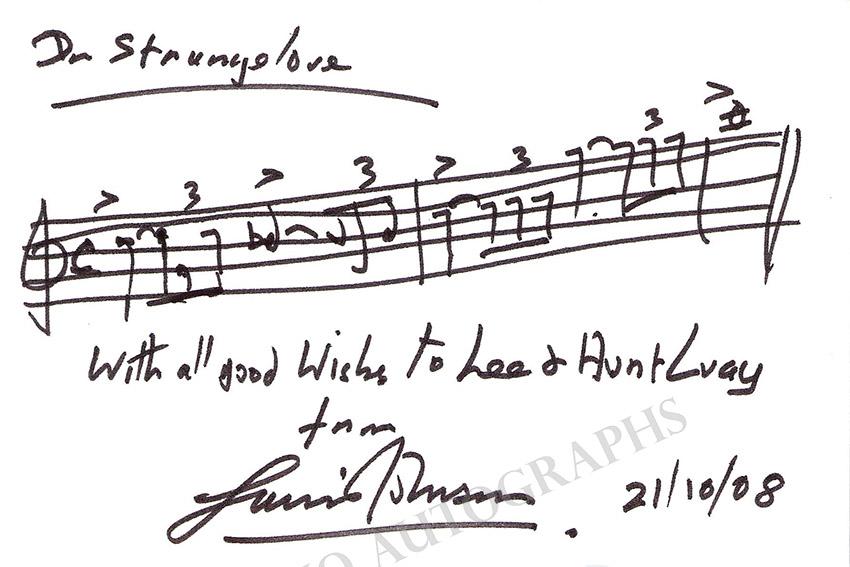 Dr Strangelove
> 3 > 3 > 3 3 >
With all good Wishes to Lee & Aunt Lucy
from
Laurie Johnson
21/10/08
AUTOGRAPHS